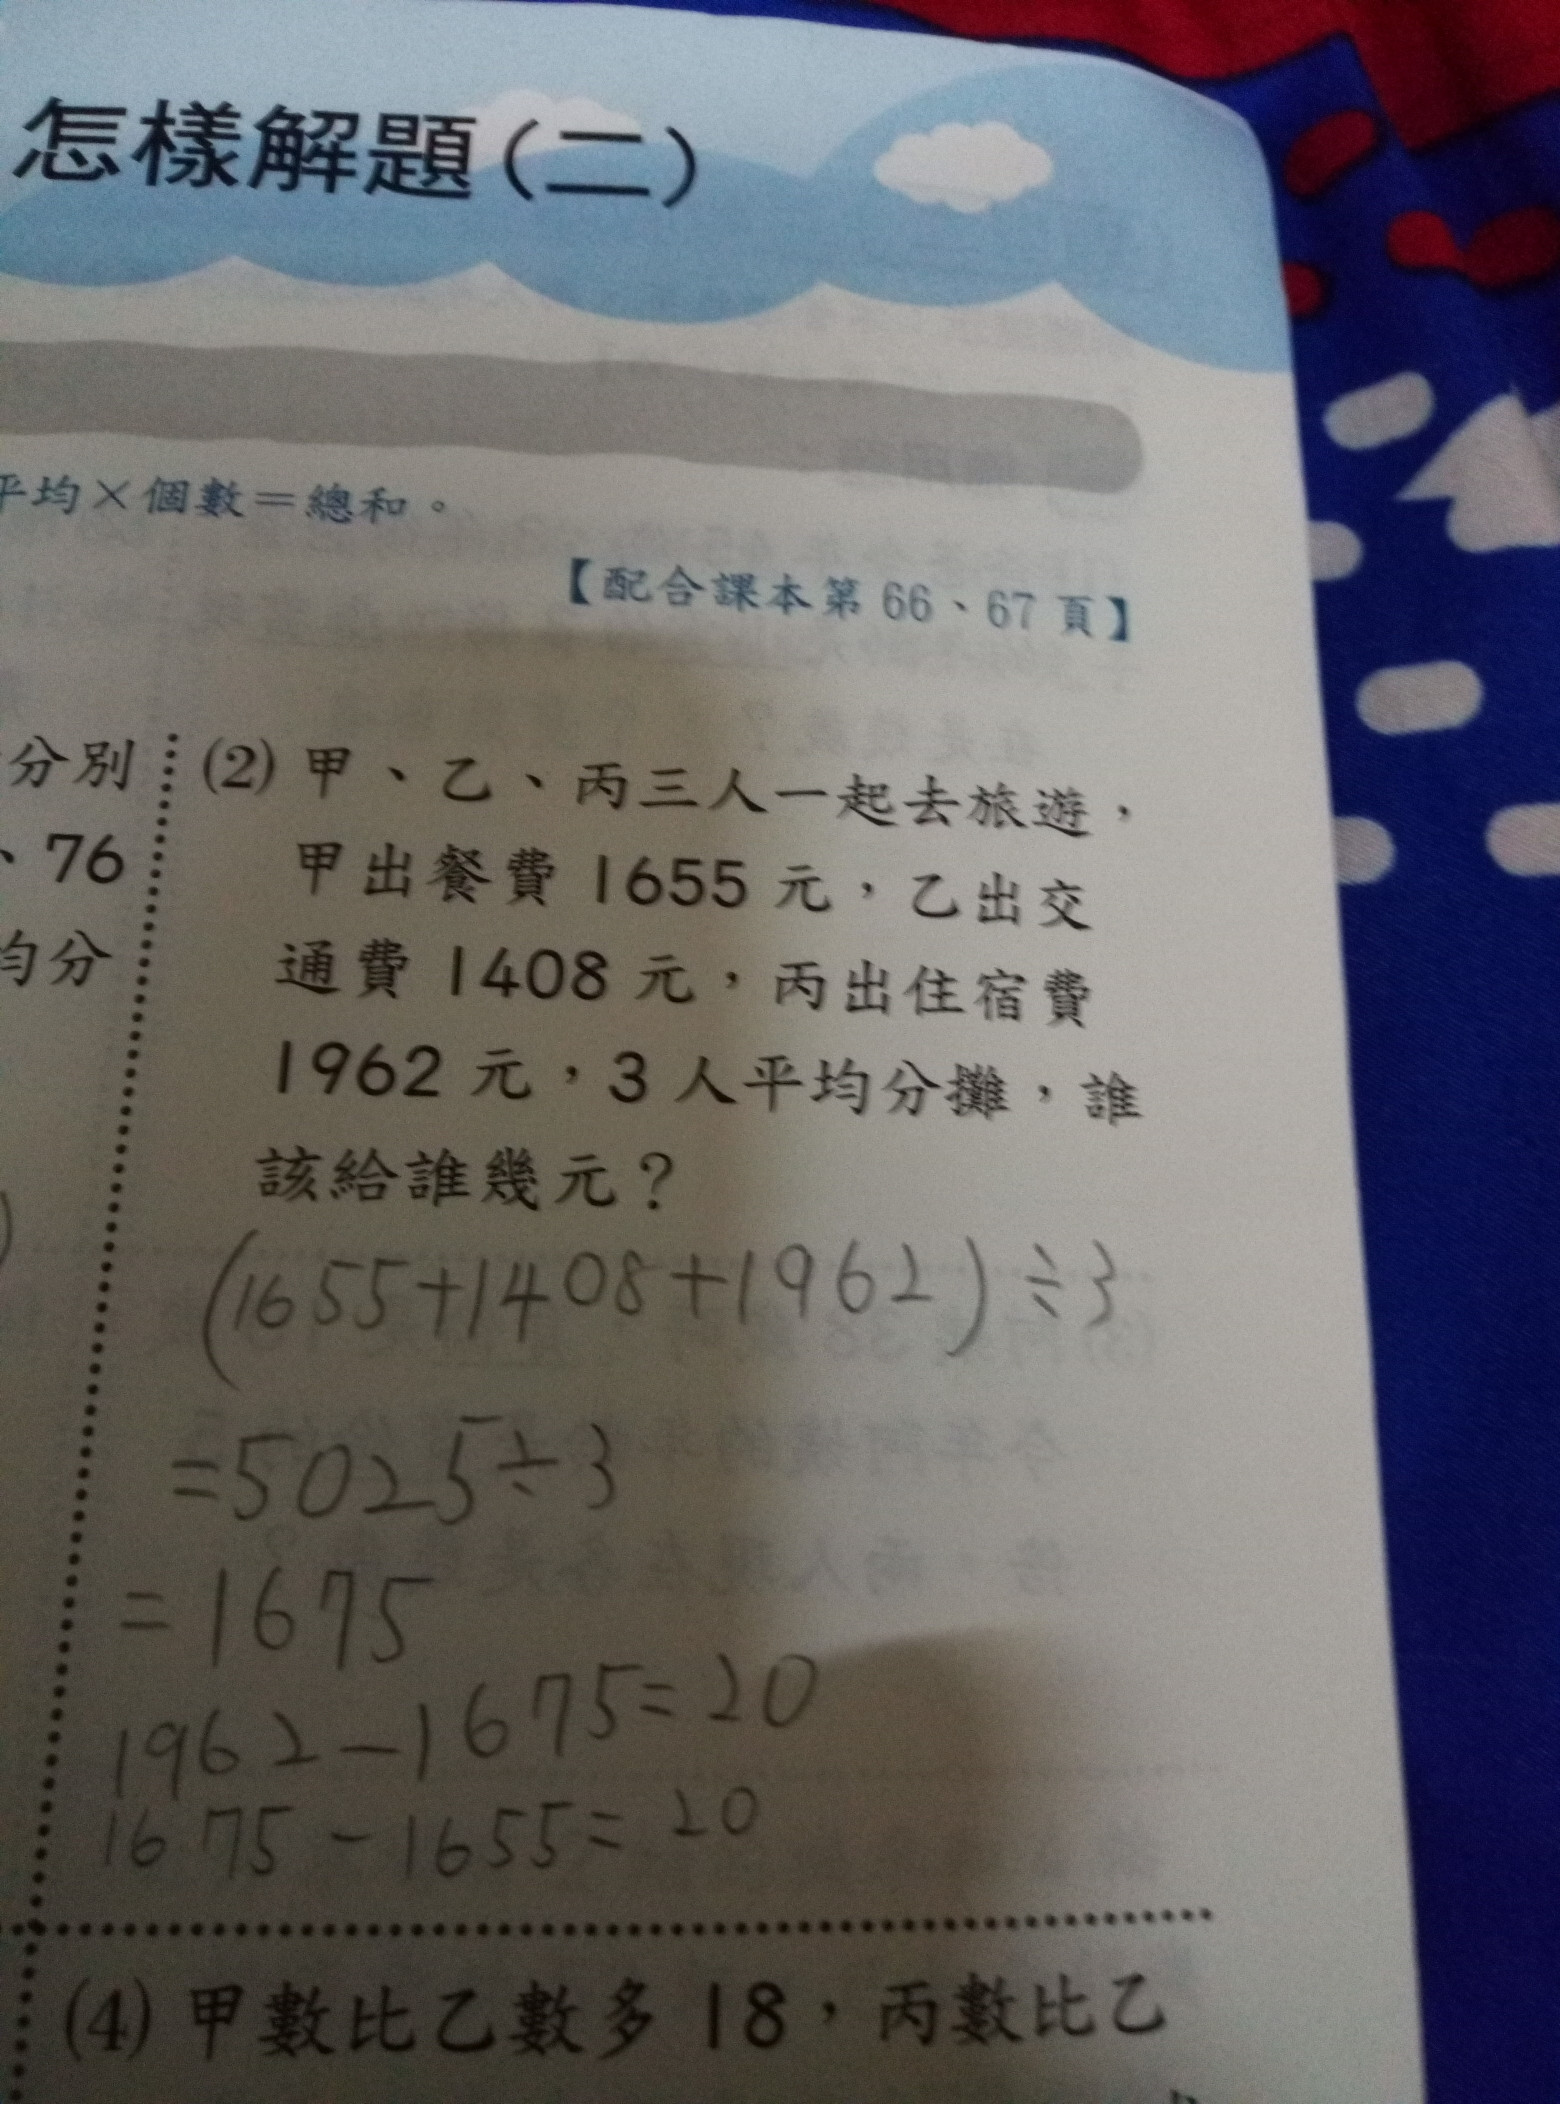 怎樣解題(二)
平均×個數=總和。
【配合課本第 66、67 頁】
分別
、76
均分
(2) 甲、乙、丙三人一起去旅遊，
甲出餐費 1655 元，乙出交
通費 1408 元，丙出住宿費
1962 元，3 人平均分攤，誰
該給誰幾元？
(1655+1408+1962)÷3
=5025÷3
=1675
1962-1675=20
1675-1655=20
(4) 甲數比乙數多 18，丙數比乙